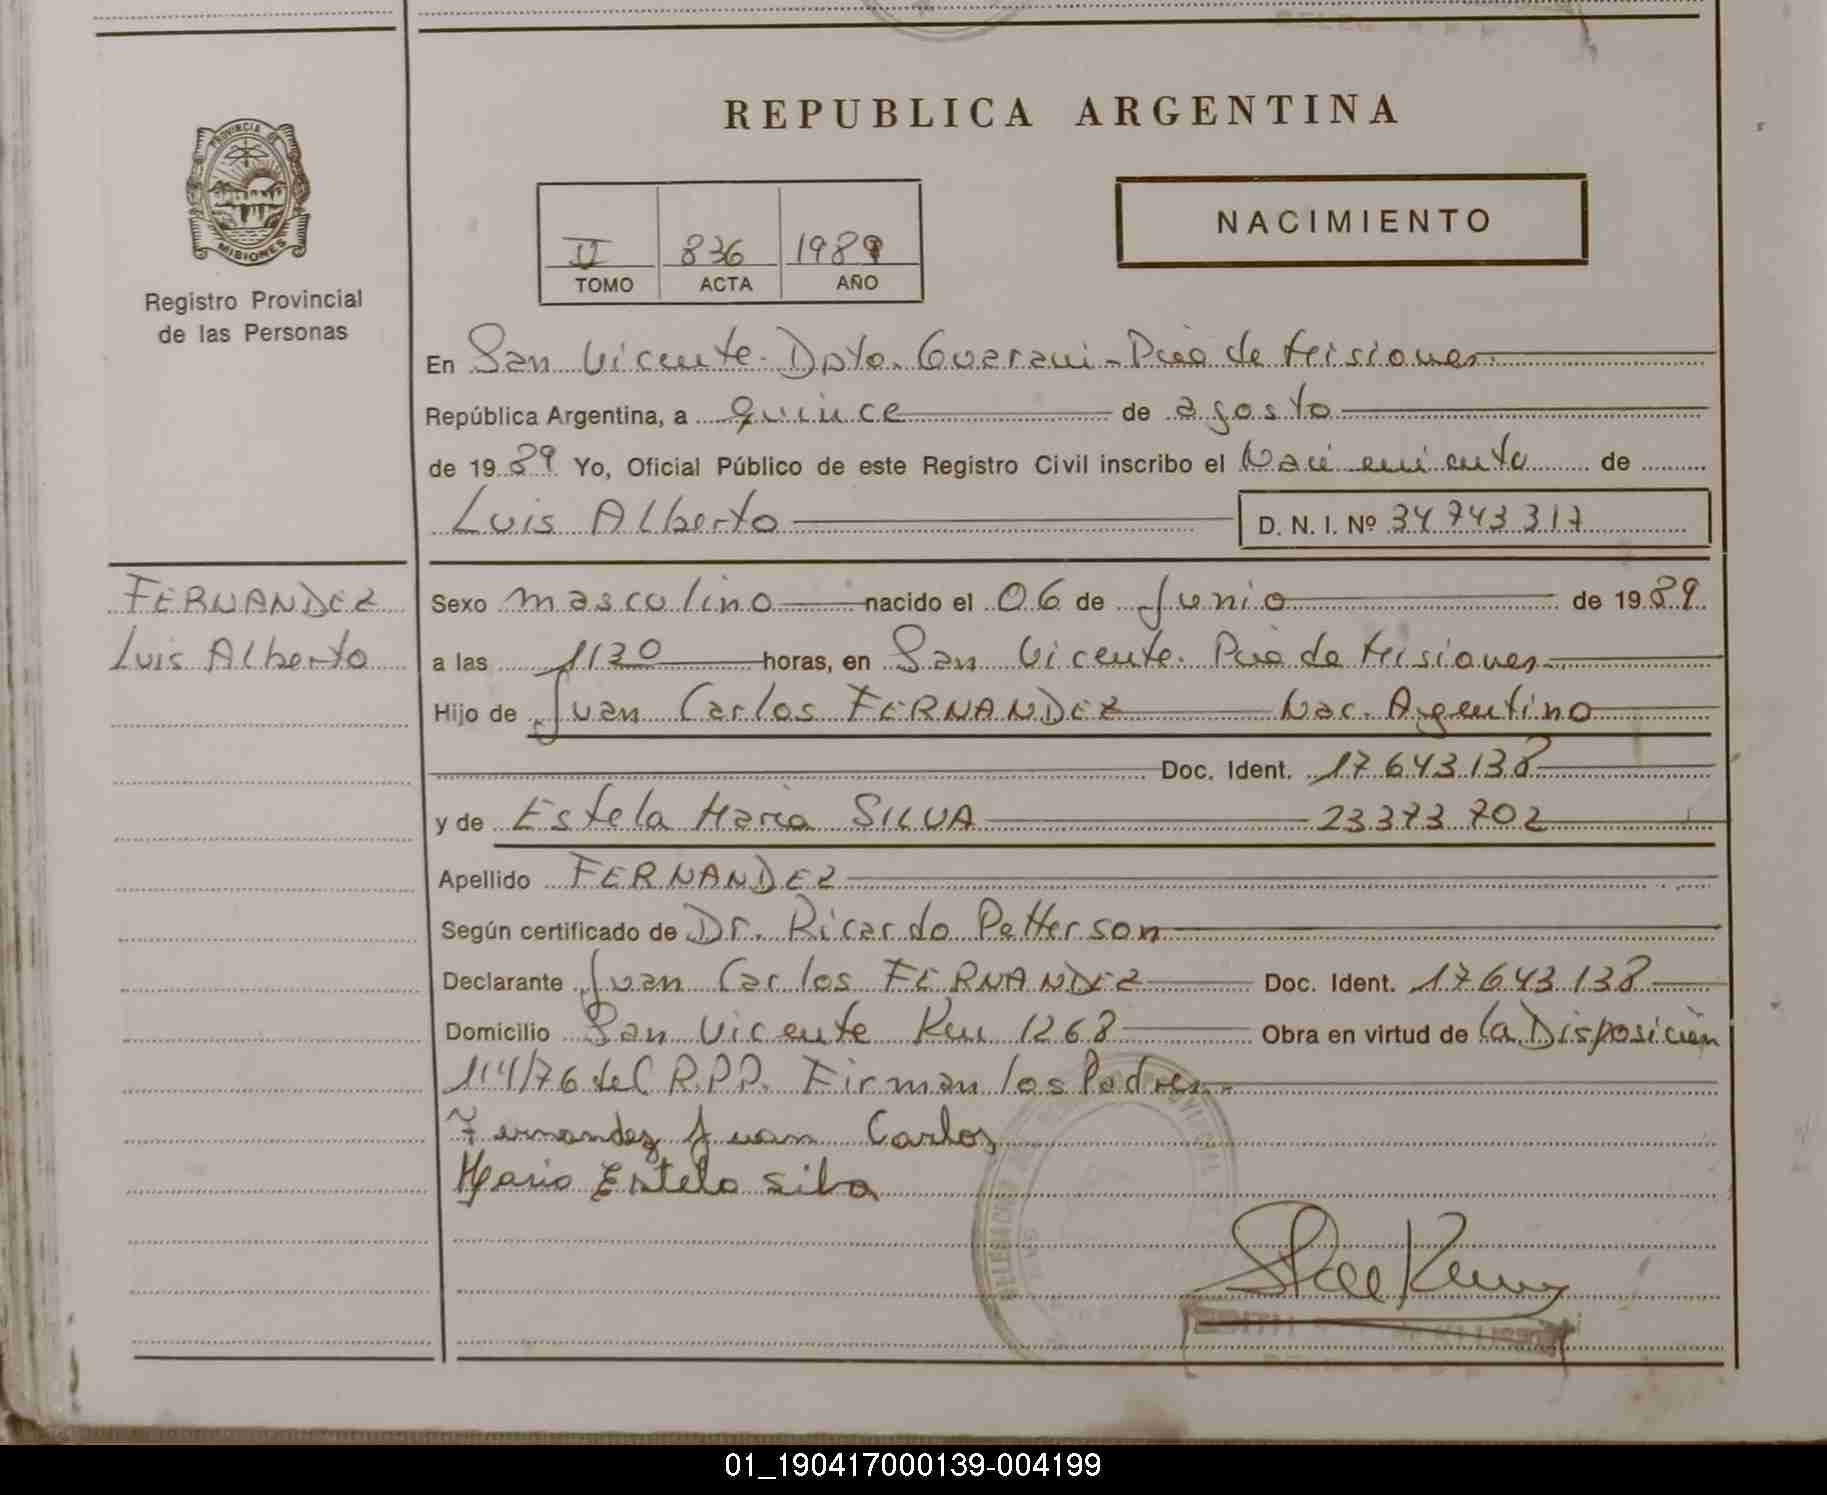 REPUBLICA ARGENTINA
PROVINCIA DE
MISIONES
Registro Provincial
de las Personas
II 836 1989
TOMO ACTA AÑO
NACIMIENTO
En San Vicente. Dpto. Guarani - Pcia de Misiones.
República Argentina, a quince de agosto
de 1989 Yo, Oficial Público de este Registro Civil inscribo el Nacimiento de
Luis Alberto D. N. I. Nº 34 743 317
FERNANDEZ
Luis Alberto
Sexo masculino nacido el 06 de Junio de 1989
a las 1130 horas, en San Vicente. Pcia de Misiones
Hijo de Juan Carlos FERNANDEZ Nac. Argentino
Doc. Ident. 17 643 138
y de Estela Maria SILVA 23373 702
Apellido FERNANDEZ
Según certificado de Dr. Ricardo Petterson
Declarante Juan Carlos FERNANDEZ Doc. Ident. 17643 138
Domicilio San Vicente Km 1268 Obra en virtud de la Disposición
114/76 del R.P.P. Firman los Padres
Fernandez Juan Carlos
Maria Estela Silva
01_190417000139-004199